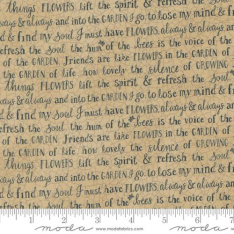 things. FLOWERS lift the Spirit & refresh the Soul.
always & always and into the GARDEN I go to lose my mind & fi
d & find my Soul I must have FLOWERS always & always an
refresh the Soul the hum of the bees is the voice of the
of the GARDEN. Friends are like FLOWERS in the GARDEN of
the GARDEN of life. how lovely the silence of GROWING
things. FLOWERS lift the Spirit & refresh the Soul
always & always and into the GARDEN I go to lose my mind &
d & find my Soul I must have FLOWERS always & always an
refresh the Soul the hum of the bees is the voice of the
of the GARDEN. Friends are like FLOWERS in the GARDEN of
the GARDEN of life. how lovely the silence of GROWING
things. FLOWERS lift the Spirit & refresh the Soul
always & always and into the GARDEN I go to lose my mind & f
d & find my Soul I must have FLOWERS always & always an
the hum of the bees is the voice of the
1 2 3 4 5 6 7
moda www.modafabrics.com moda